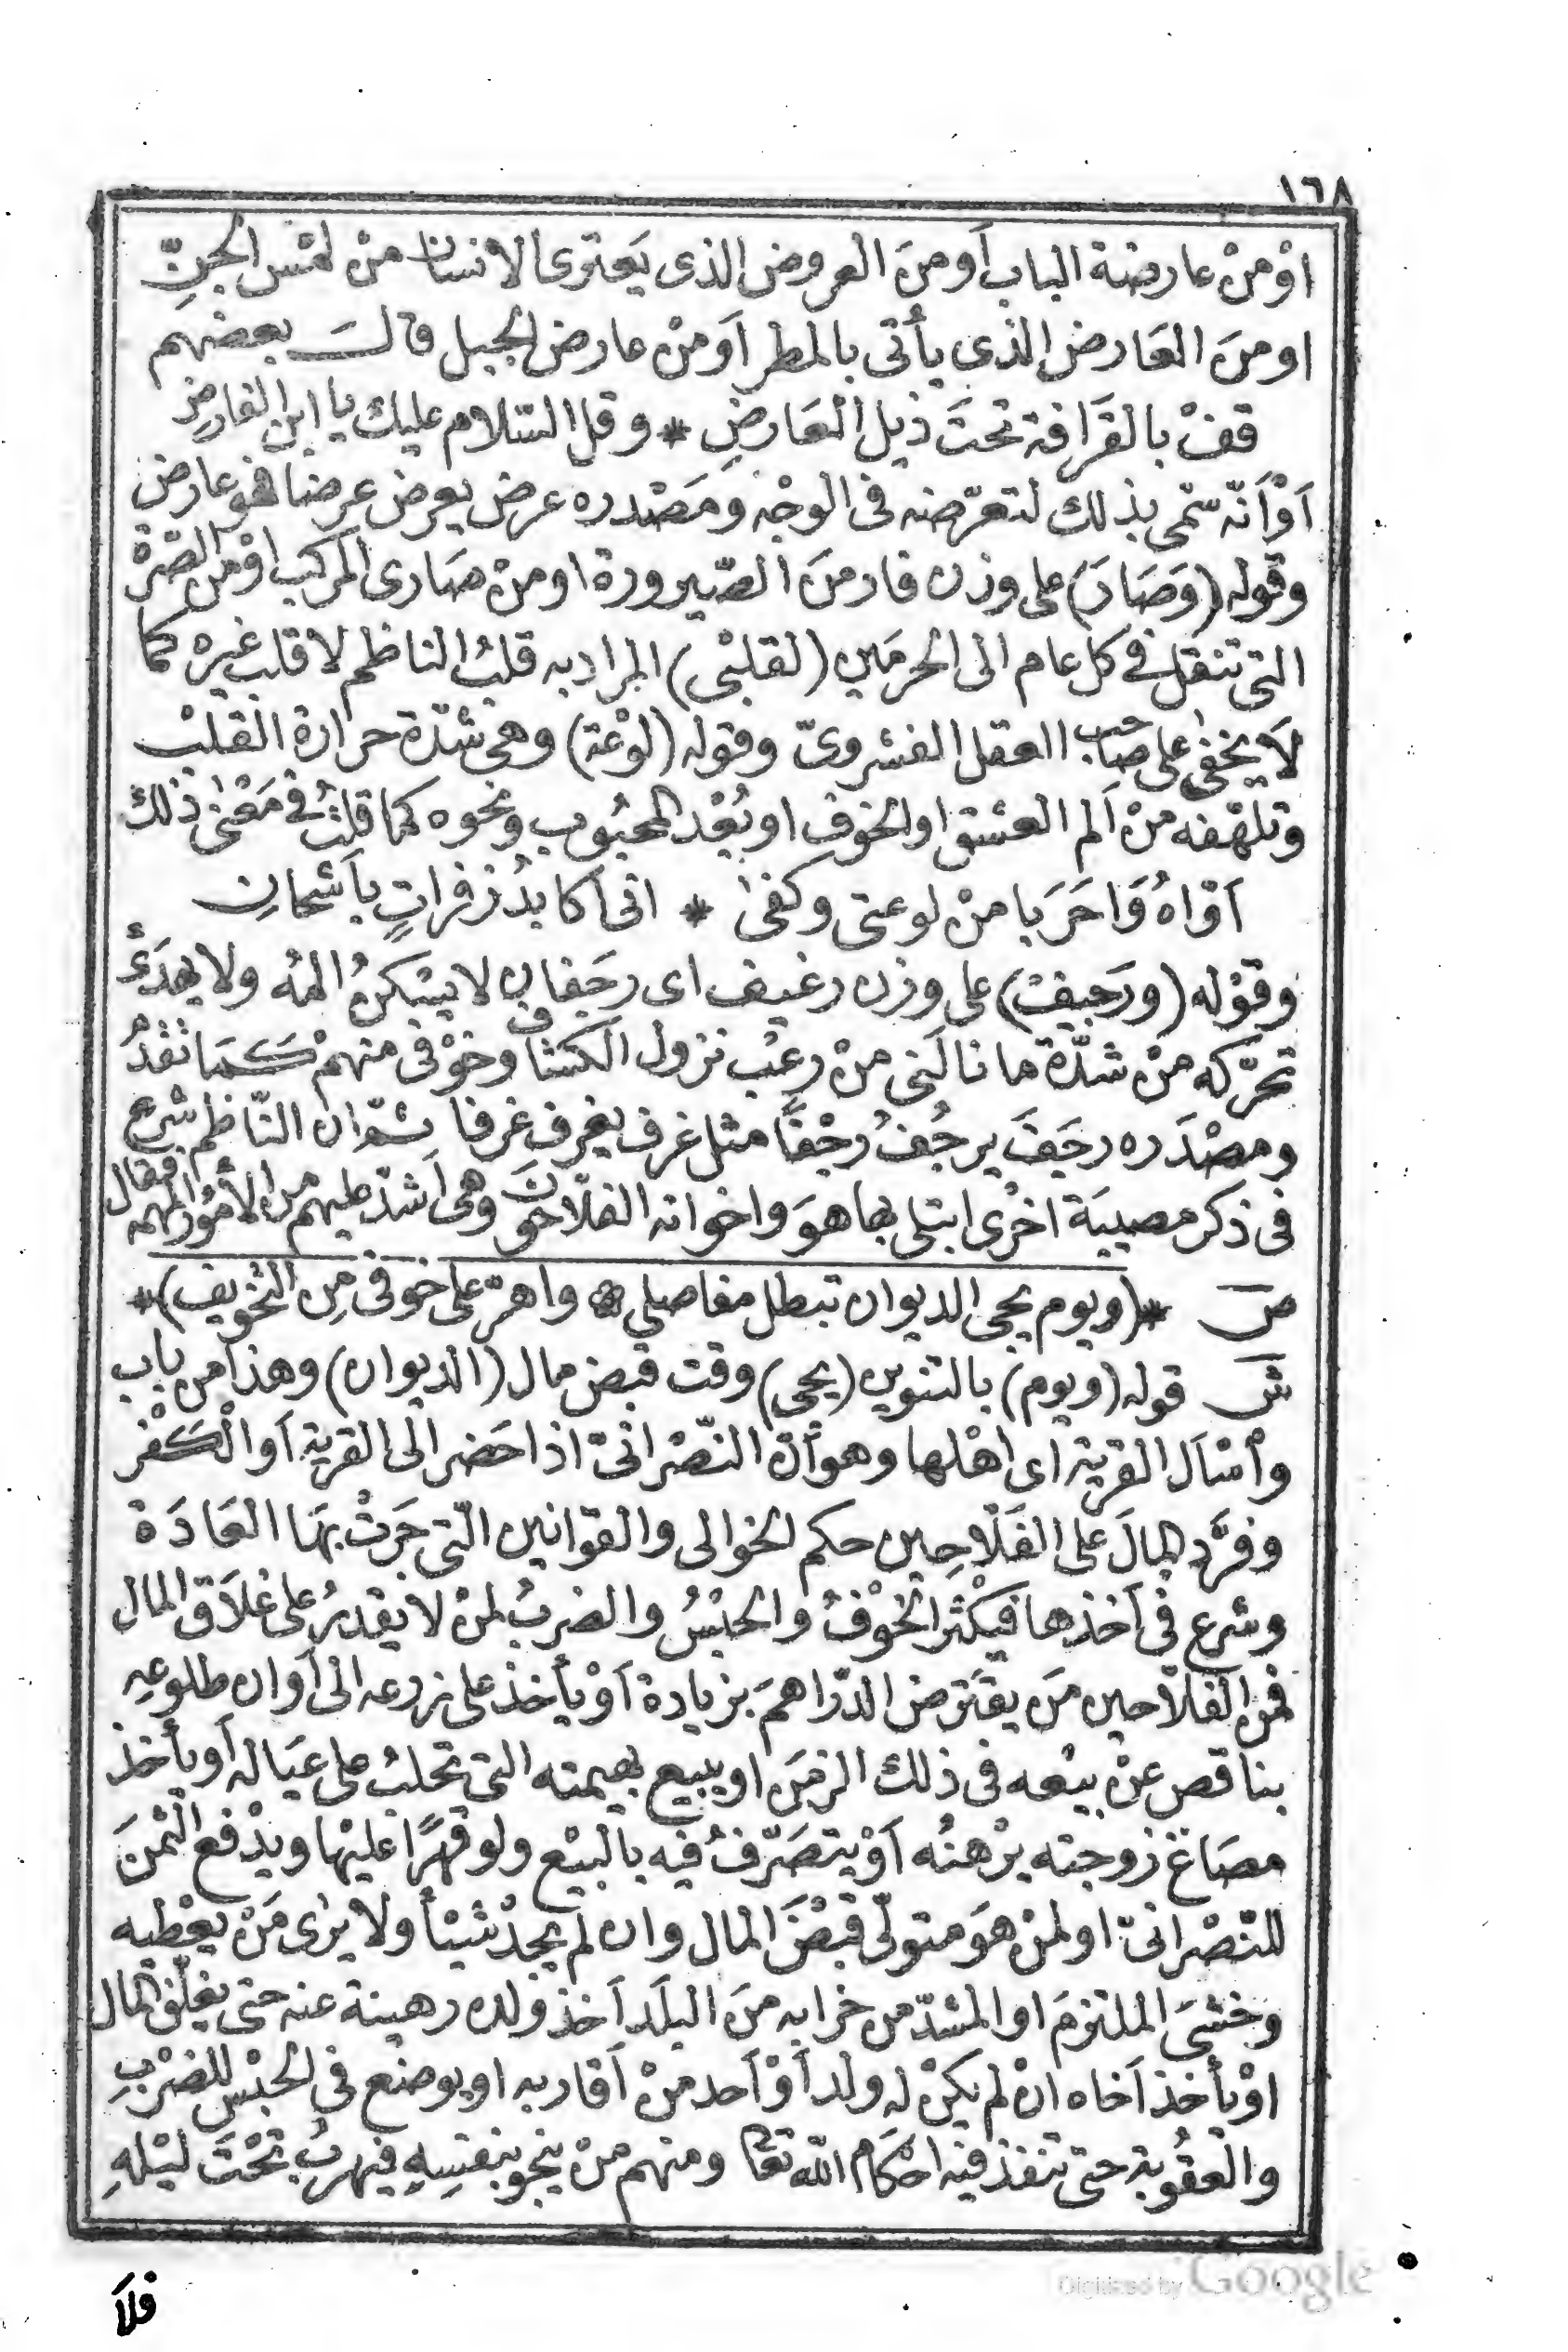 ١٦٨
اوْ منْ عارضة الباب أَو منَ العروض الذى يَعترى الانسان منْ لمْس الجنِّ
او منَ العَارض الذى يأتى بالمطر اَو منْ عارض الجبل قالَ بعضهم
قفْ بالقَرافة تحتَ ذيل العَارضِ * وقل السّلام عليك يا ابن الفارضِ
اَوْ اَنّه سمّى بذلك لتعرّضه فى الوجْه ومَصْدره عرض يعرض عرضا فهو عارض
وقوله (وَصَارَ) على وزن فار منَ الصّيرورة او منْ صَارى المركب اوْ من الصّرّة
التى تنقل فى كل عام الى الحرمَين (لقلبْى) المراد به قلبُ الناظم لا قلب غيره كما
لاَ يخفى على صاحب العقل الفشروىّ وقوله (لوْعة) وهى شدّة حرارة القلْب
وتلهّفه منْ اَلم العشق او الخوف او بُعْد المحبُوب ونحوه كما قلتُ فى مَعْنى ذلك
اَوّاهُ وَاحَرَبا منْ لوعتى وكفىٰ * انى اَكابدُ زفراتٍ باَشجانِ
وقوْله (ورَجيف) على وزن رغيف اى رجَفان لا يسْكنُ المهُ ولا يهدَءُ
تحرّكه منْ شدّة ما نالَنى منْ رعْب نزول الكشاف وخوْفى منهمْ كَمَا تقدّمُ
ومصْدَره رجَفَ يرجُفُ رجْفًا مثل غرف يغرف غرفا ثمّ ان النّاظم شرع
فى ذكر مصيبَة اخرى ابتلى بها هوَ واخوانه الفلاّحونَ وهى اَشدّ عليهم من الأمُور المهمّه فقال
ص *(ويوم يجى الديوان تبطل مفاصلى * واهرّ على خوفى مِن التّخويف)*
ش قوله (ويوم) بالتنوين (يجى) وقت قبض مال (الديوان) وهذا من باب
واْسْاَل القرية اى اهْلها وهو اَنّ النّصْرانىّ اذا حَضر الى القرية اَو الْكَفْر
وفرَّد المالَ عَلى الفَلاّحِين حكم الخوالى والقوانين الّتى جَرَتْ بهَا العَادَة
وشرع فى اَخذها فيكْثر الخوْفُ والحبْسُ والضربُ لمنْ لا يقدرُ على غلاَق المال
فمن الفلاّحين مَن يقتَرض الدّراهمَ بزيادة اَوْ يأخذ على زرعه الى اَوان طلوعِهِ
بناقص عنْ بيْعه فى ذلك الزمَن او يبيع بهيمته التى تحلبُ على عيَاله اَو يأخذ
مصَاغ زوجته يرْهنُه اَوْ يتصَرّفُ فيه بالبيْع ولو قهرًا عليْها ويدْفع الثمنَ
للنّصْرانىّ او لمنْ هوَ متولّى قبْضَ المال وان لمْ يجدْ شيئاً ولا يرىٰ مَنْ يعْطيه
وخشىَ الملتزمَ او المشدّ من خرابه منَ البلَد اَخذ ولده رهينة عنه حتى يغلّق المال
اوْ يأخذ اَخاه انْ لم يكنْ له ولد اَوْ اَحد منْ اَقاربه او يوضع فى الحبْس للضرْبِ
والْعقُوبة حتى تنفذ فيه احْكام اللّه تعالى ومنهم منْ ينجو بنفسِهِ فيهربُ تحْتَ ليْلهِ
فلاَ
Digitized by Google